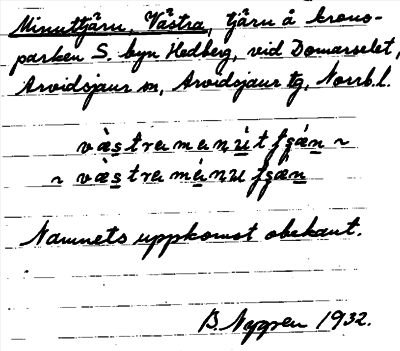 Minuttjärn, Västra, tjärn å krono-
parken S. byn Hedberg, vid Domarselet,
Arvidsjaur sn, Arvidsjaur tg, Norrb.l.
Namnets uppkomst obekant.
B. Nygren 1932.